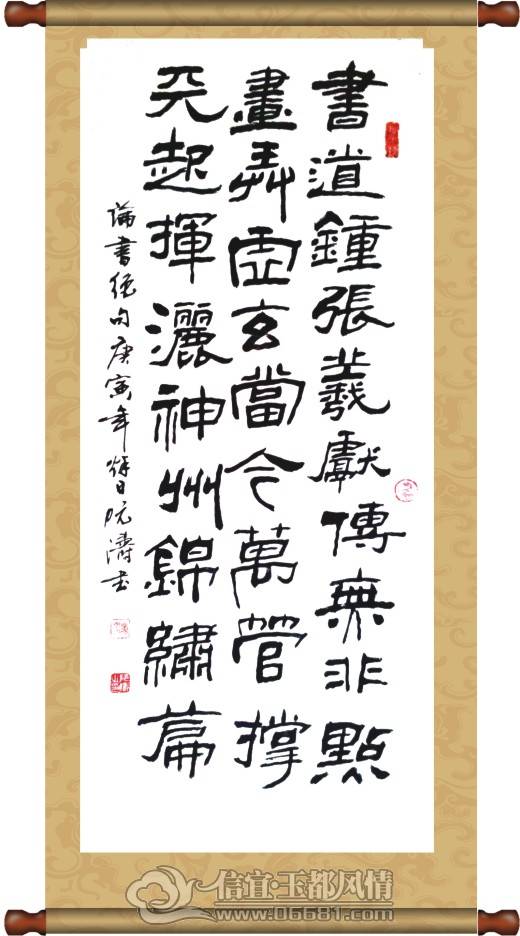 書道鍾張羲獻傳無非點
畫弄虛玄當今萬管撐
天起揮灑神州錦繡篇
論書絕句庚寅年日阮濤書
信宜·玉都风情
www.06681.com